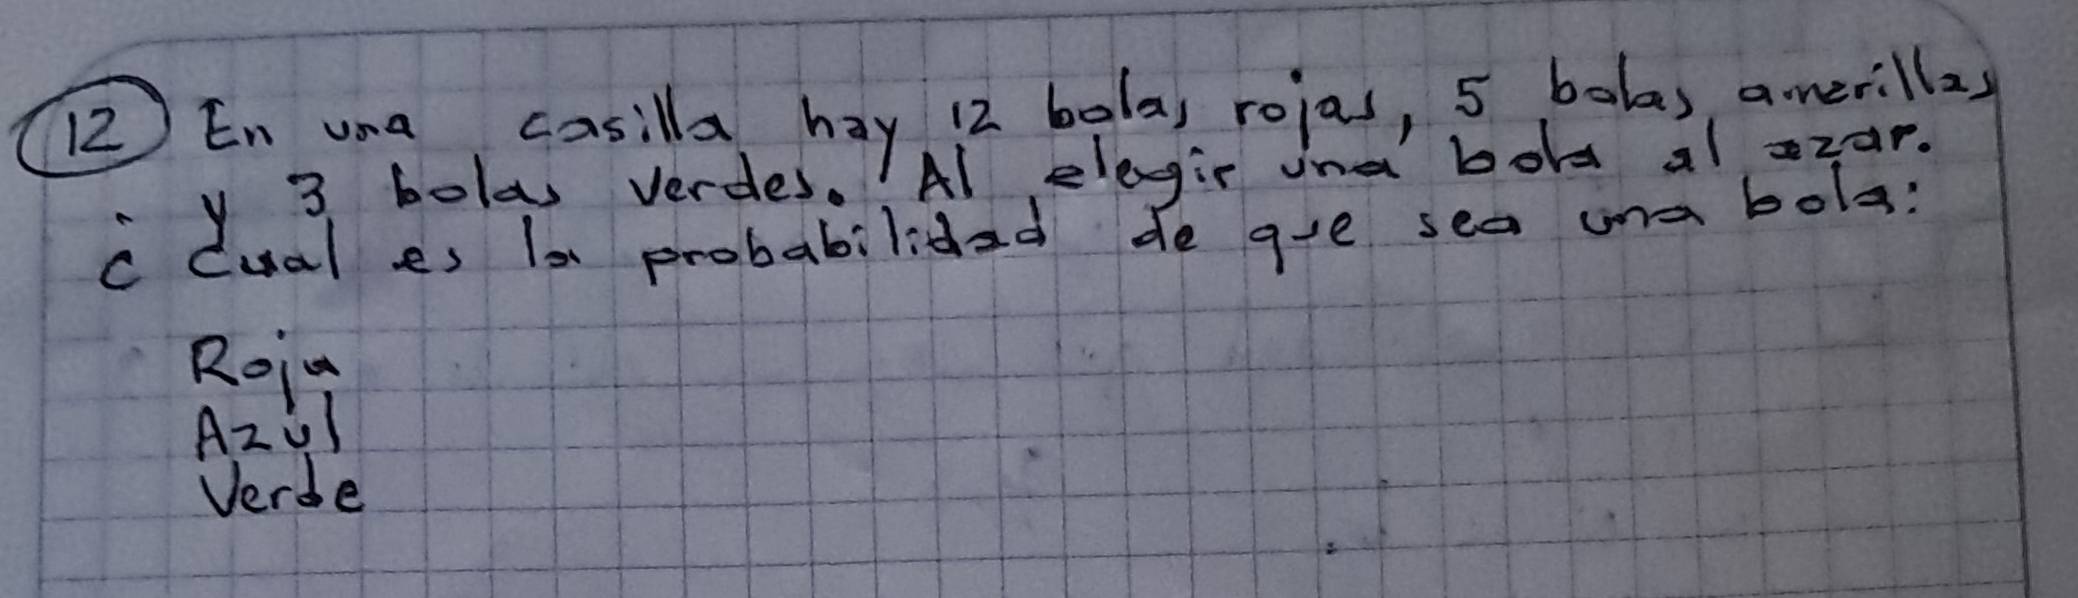 12 En una casilla hay 12 bolas rojas, 5 bolas amarillas
y 3 bolas verdes. Al elegir una bola al azar.
¿ Cual es la probabilidad de que sea una bola:
Roja
Azul
Verde